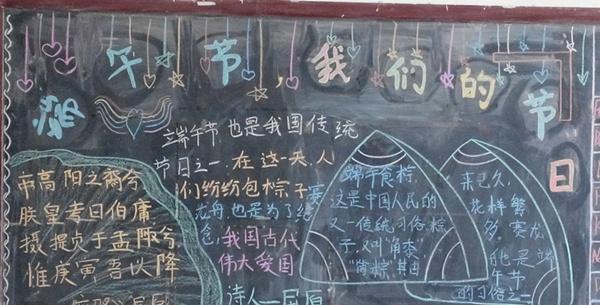 端午节,我们的节日
帝高阳之裔兮
朕皇考曰伯庸
摄提贞于孟陬兮
惟庚寅吾以降
端午节,也是我国传统
节日之一,在这一天,人
们纷纷包粽子赛
龙舟,也是为了纪
念,我国古代
伟大爱国
诗人—屈原
端午食粽,
这是中国人民的
又一传统习俗,粽
子,又叫“角黍”,
“筒粽”其由
来已久,
花样繁
多。赛龙
也是端
午节
的习俗之一